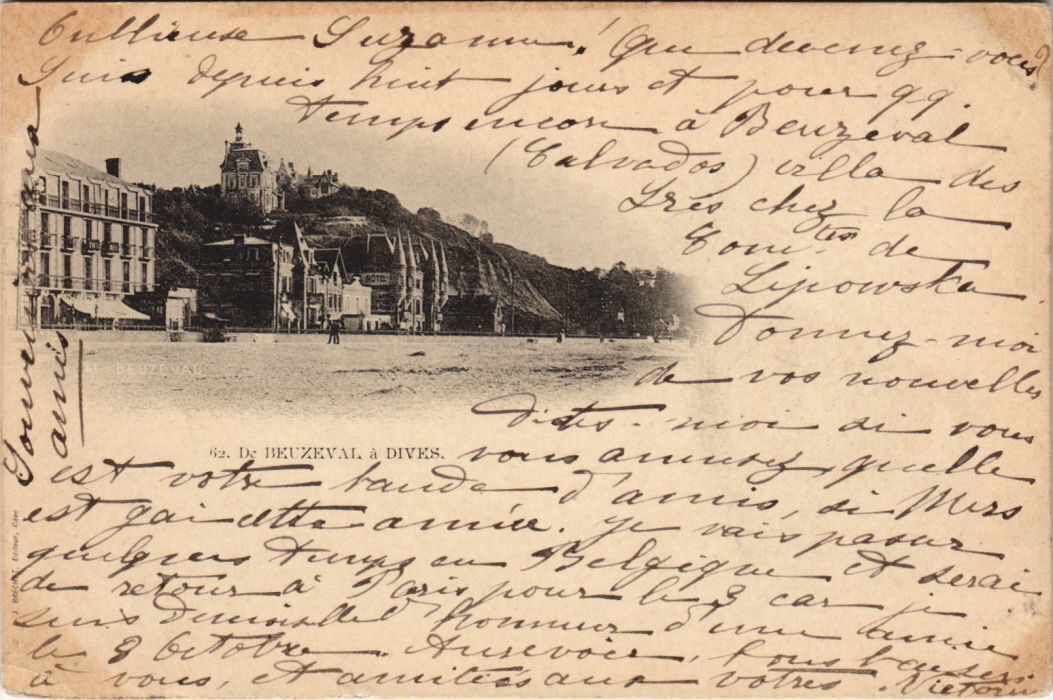 Oublieuse Suzanne! Que devenez-vous?
Suis depuis huit jours et pour qq.
temps encore à Beuzeval
(Calvados) villa des
Lys chez la
Comtes de
Lipowska.
Donnez-moi
de vos nouvelles
Dites-moi si vous
vous amusez, quelle
est votre bande d'amis, si Mers
est gai cette année. Je vais passer
quelques temps en Belgique et serai
de retour à Paris pour le 3 car je
suis Demoiselle d'Honneur d'une amie
le 8 Octobre. Aurevoir, bons baisers
à vous, et amitiés aux votres.
Souvenir aux
amis
HOTEL
BEUZEVAL
62. De BEUZEVAL à DIVES.
J. BRÉCHET, Editeur, Caen